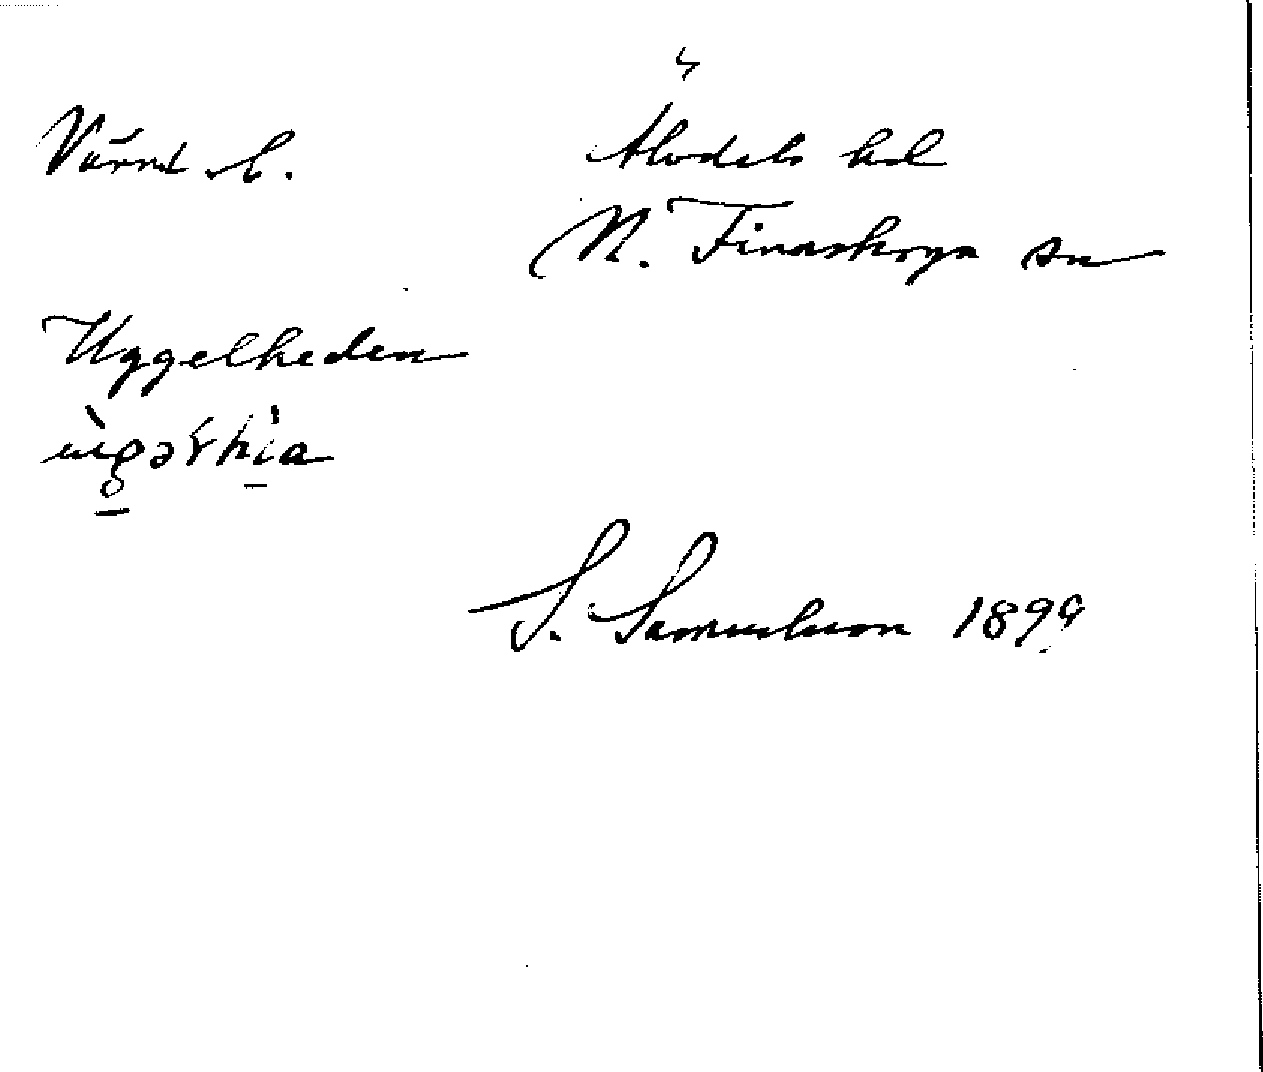 Värml. l.
Älvdals hd
N. Finnskoga sn
Uggelheden
S. Samuelsson 1899